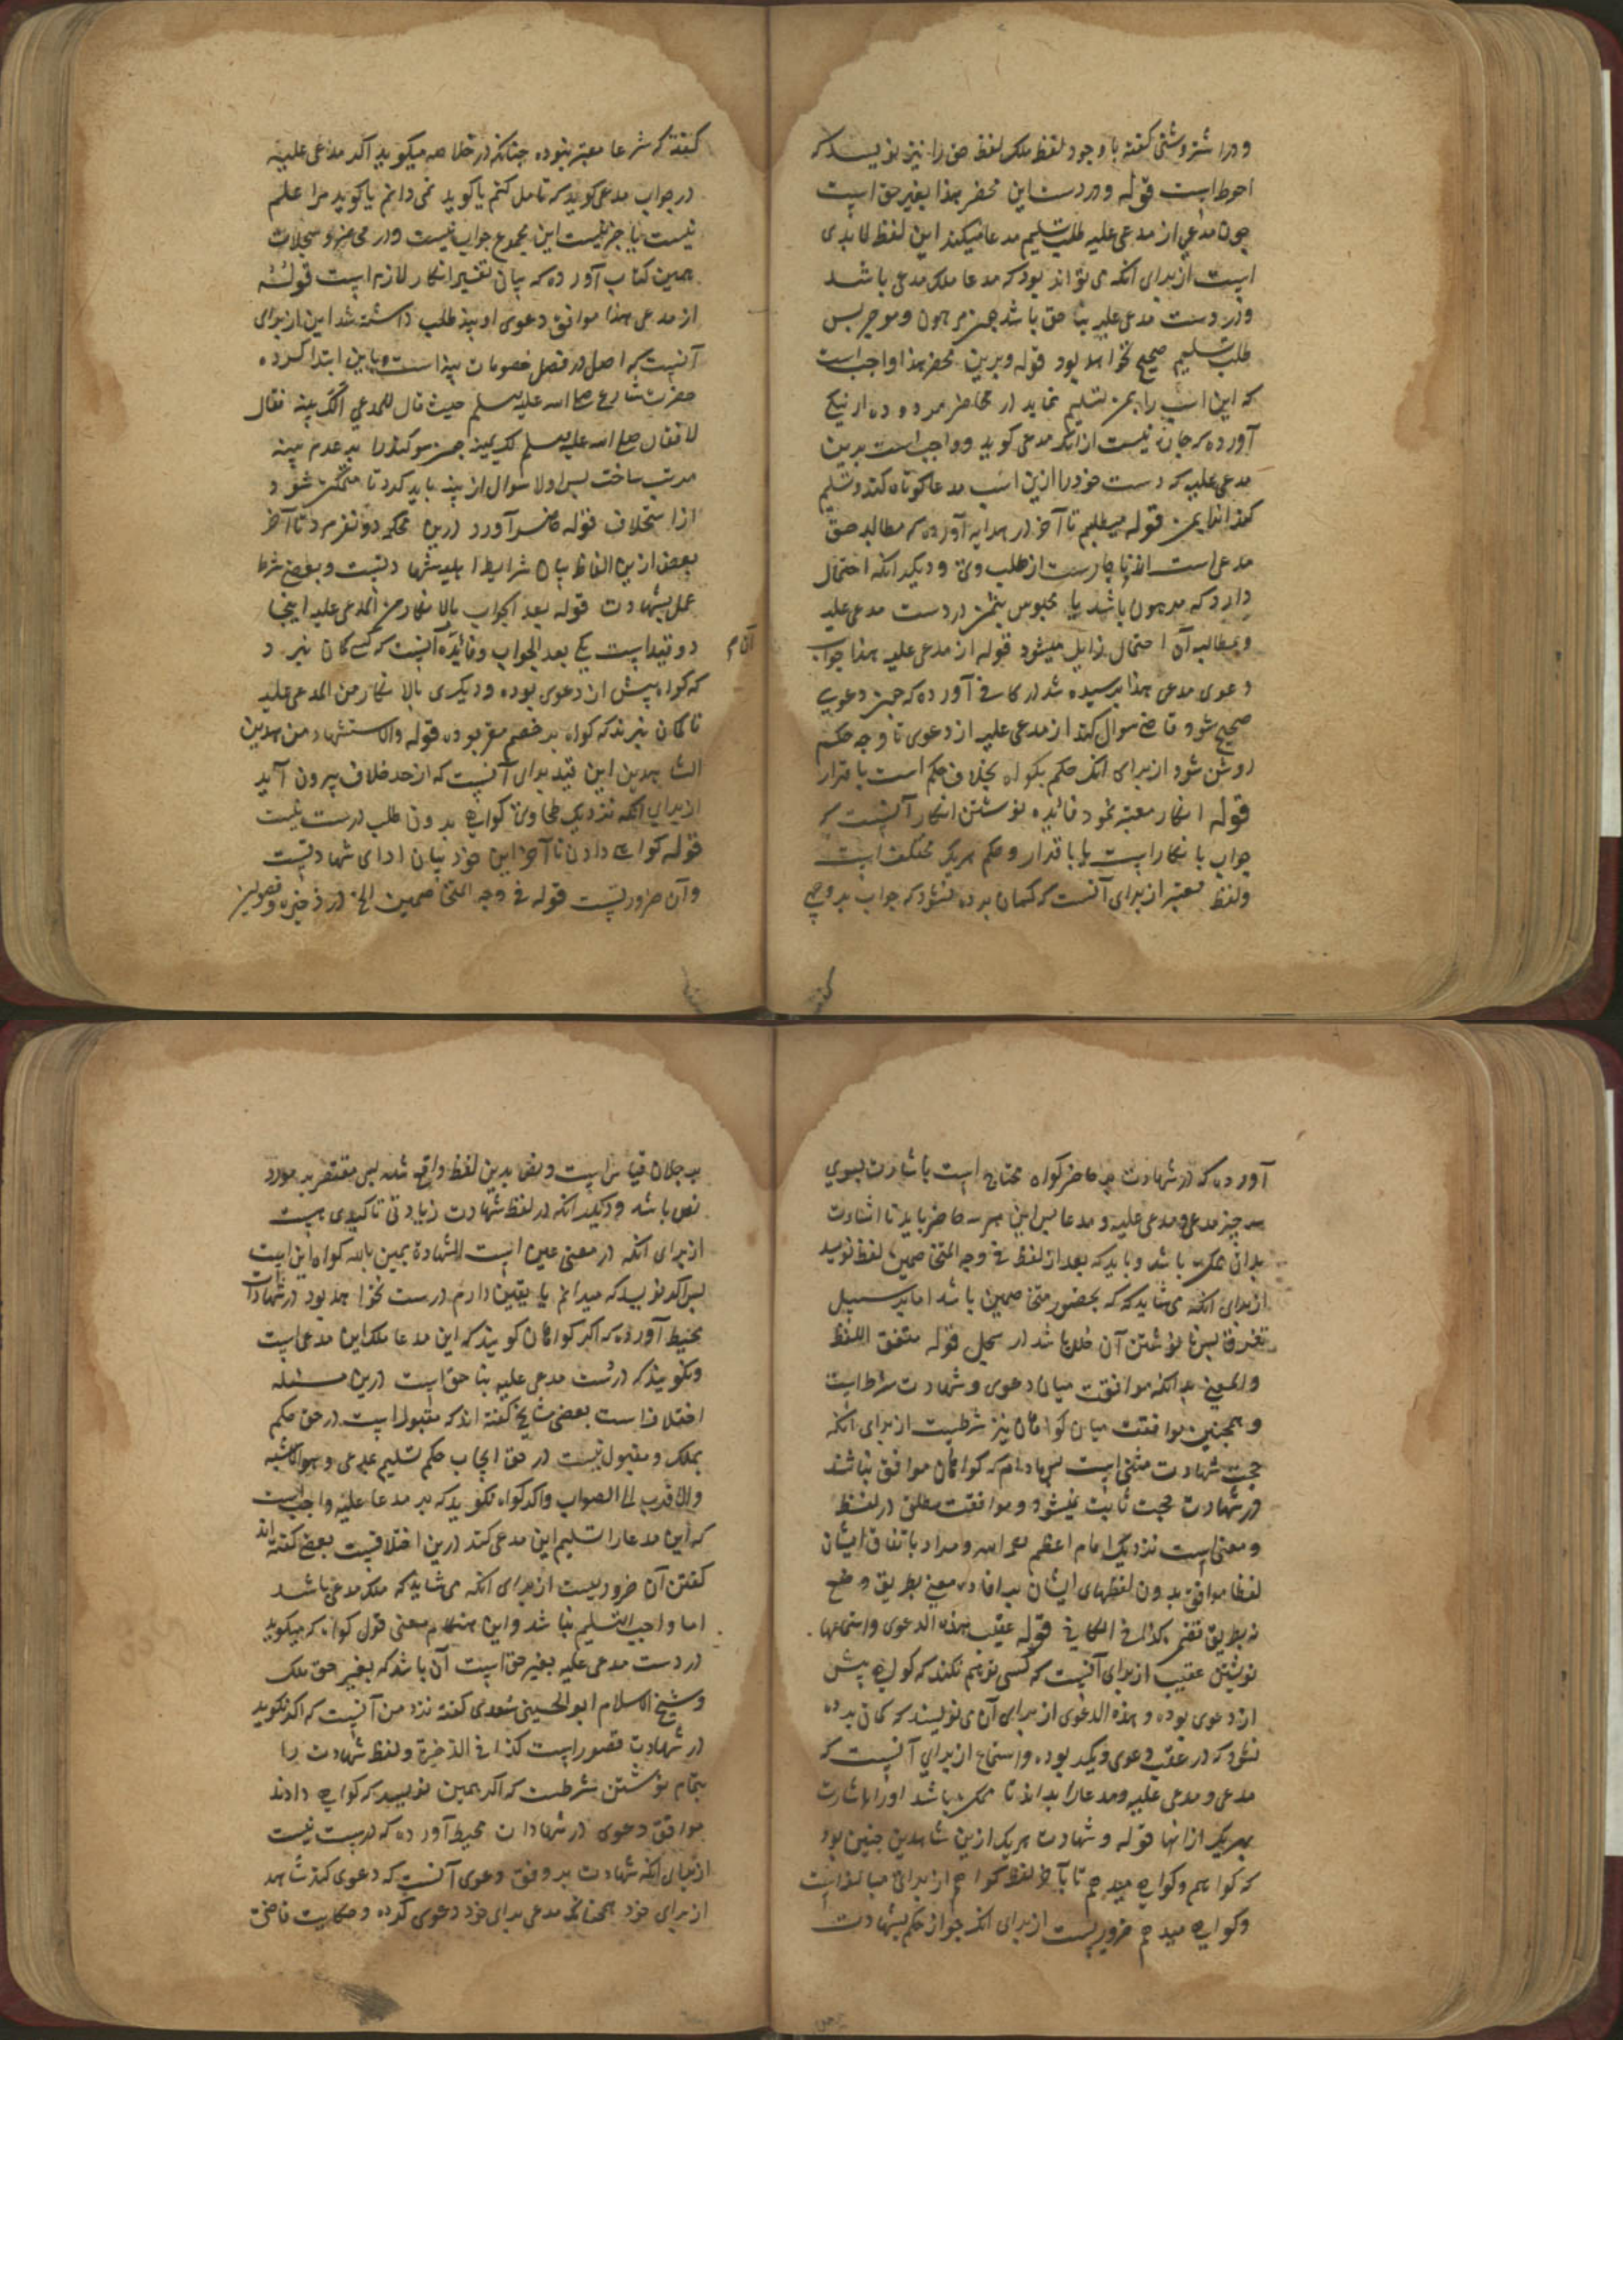 ودر اشتروشنی کفته با وجود لفظ ملک لفظ حق را نیز نویسد که
احوط است قوله ودر دست این محضر هذا بغیر حق است
چون مدعی از مدعی علیه طلب تسلیم مدعا میکند این لفظ لا بدی
است از برای انکه می تواند بود که مدعا ملک مدعی باشد
ودر دست مدعی علیه بنا حق باشد چون مرهون وموجر پس
طلب تسلیم صحیح نخواهد بود قوله وبرین محضر هذا واجب است
که این اسپ را بمن تسلیم نماید در محاضر مردوده
آورده که چاره نیست از انکه مدعی کوید وواجب است برین
مدعی علیه که دست خود را ازین اسب مدعا کوتاه کند وتسلیم
کند قوله میطلبم تا آخر در هدایه آورده که مطالبه حق
مدعی است لا چارست از طلب وی ودیکر انکه احتمال
دارد که مرهون باشد یا محبوس بثمن در دست مدعی علیه
وبمطالبه آن احتمال زایل میشود قوله از مدعی علیه هذا جواب
دعوی مدعی هذا پرسیده شد در کافی آورده که چون دعوی
صحیح شود قاضی سوال کند از مدعی علیه از دعوی تا وجه حکم
روشن شود از برای انکه حکم بکواه بخلاف حکم است باقرار
قوله انکار معتبر نمود فائده نوشتن انکار آنست که
جواب با نکار است یا باقرار وحکم هریک مختلف است
ولفظ معتبر از برای آنست که کمان برده نشود که جواب بر وجهی
کفته که شرعا معتبر نبوده چنانکه در خلاصه میکوید اکر مدعی علیه
در جواب مدعی کوید که تامل کنم یا کوید نمی دانم یا کوید مرا علم
نیست یا خبر نیست این مجموع جواب نیست ودر محاضر وسجلات
همین کتاب آورده که بیان تفسیر انکار لازم است قوله
از مدعی هذا موافق دعوی او بینه طلب داشته شد این از برای
آنست که اصل در فصل خصومات بینه است وباین ابتدا کرده
حضرت شارع صلی الله علیه وسلم حیث قال للمدعی الک بینة فقال
لا فقال صلی الله علیه وسلم لک یمینه چون سوکند را بر عدم بینه
مرتب ساخت پس اولا سوال از بینه باید کرد تا متمکن شود
از استحلاف قوله حاضر آورد درین محکمه دو نفر مرد تا آخر
بعض ازین الفاظ بیان شرایط اهلیت شهادتست وبعض شرط
عمل بشهادت قوله بعد الجواب بالانکار من المدعی علیه اینجا
دو قید است یکی بعد الجواب وفائده آن آنست که کسی کمان نبرد
که کواه پیش از دعوی بوده ودیکری بالانکار من المدعی علیه
تا کمان نبرند که کواه بر خصم مقر بوده قوله والاستشهاد من هذین
الشاهدین این قید برای آنست که از حد خلاف بیرون آید
از برای انکه نزدیک طحاوی کواهی بدون طلب درست نیست
قوله کواهی دادن تا آخر این خود بیان ادای شهادتست
وآن ضروریست قوله فی وجه المتخاصمین الخ در ذخیره وفصولین
آورده که در شهادت بر حاضر کواه محتاج است باشارت بسوی
سه چیز مدعی ومدعی علیه ومدعا پس این هر سه حاضر باید تا اشارت
بدان ممکن باشد وباید که بعد از لفظ فی وجه المتخاصمین لفظ نویسد
از برای انکه می شاید که بحضور متخاصمین باشد اما بر سبیل
تفرق پس نا نوشتن آن خلل باشد در سجل قوله متفق اللفظ
والمعنی بدانکه موافقت میان دعوی وشهادت شرط است
وهمچنین موافقت میان کواهان نیز شرطست از برای انکه
حجت شهادت مثنی است پس مادام که کواهان موافق نباشند
در شهادت حجت ثابت نمیشود وموافقت مطلق در لفظ
ومعنی است نزدیک امام اعظم رحمه الله ومراد باتفاق ایشان
لفظا موافق بودن لفظهای ایشان بر افاده معنی بطریق وضع
نه بطریق تضمن کذا فی الکافی قوله عقیب هذه الدعوی واستماعها
نوشتن عقیب از برای آنست که کسی توهم نکند که کواهی پیش
از دعوی بوده وهذه الدعوی از برای آن می نویسند که کمان برده
نشود که در عقب دعوی دیکر بوده واستماع از برای آنست که
مدعی ومدعی علیه ومدعا را بداند تا ممکن باشد او را اشارت
بهریک از انها قوله وشهادت هریک ازین شاهدین چنین بود
که کواهم وکواهی میدهم تا بآخر لفظ کواهم از برای مبالغه است
وکواهی میدهم ضروریست از برای انکه جواز حکم بشهادت
بر خلاف قیاس است ونص بدین لفظ واقع شده پس مقتصر بر مورد
نص باشد ودیکر انکه در لفظ شهادت زیادتی تاکیدی هست
از برای انکه در معنی عین است الشهادة یمین بالله کواه این است
پس اکر نویسد که میدانم یا یقین دارم درست نخواهد بود در شهادات
محیط آورده که اکر کواهان کویند که این مدعا ملک این مدعی است
ونکویند که در دست مدعی علیه بنا حق است درین مسئله
اختلاف است بعضی مشایخ کفته اند که مقبول است در حق حکم
بملک ومقبول نیست در حق ایجاب حکم تسلیم علی مدعی وهو الاشبه
والاقرب الی الصواب واکر کواه نکوید که بر مدعا علیه واجب است
که این مدعا را تسلیم این مدعی کند درین اختلافیست بعض کفته اند
کفتن آن ضروریست از برای انکه می شاید که ملک مدعی باشد
اما واجب التسلیم نباشد واین هنکام معنی قول کواه که میکوید
در دست مدعی علیه بغیر حق است آن باشد که بغیر حق ملک
وشیخ الاسلام ابو الحسین سغدی کفته نزد من آنست که اکر نکوید
در شهادت قصور است کذا فی الذخیرة ولفظ شهادت را
بتمام نوشتن شرطست که اکر همین نویسد که کواهی دادند
موافق دعوی در شهادات محیط آورده که درست نیست
از برای انکه شهادت بر وفق دعوی آنست که دعوی کند شاهد
از برای خود همچنانکه مدعی برای خود دعوی کرده وحکایت قاضی